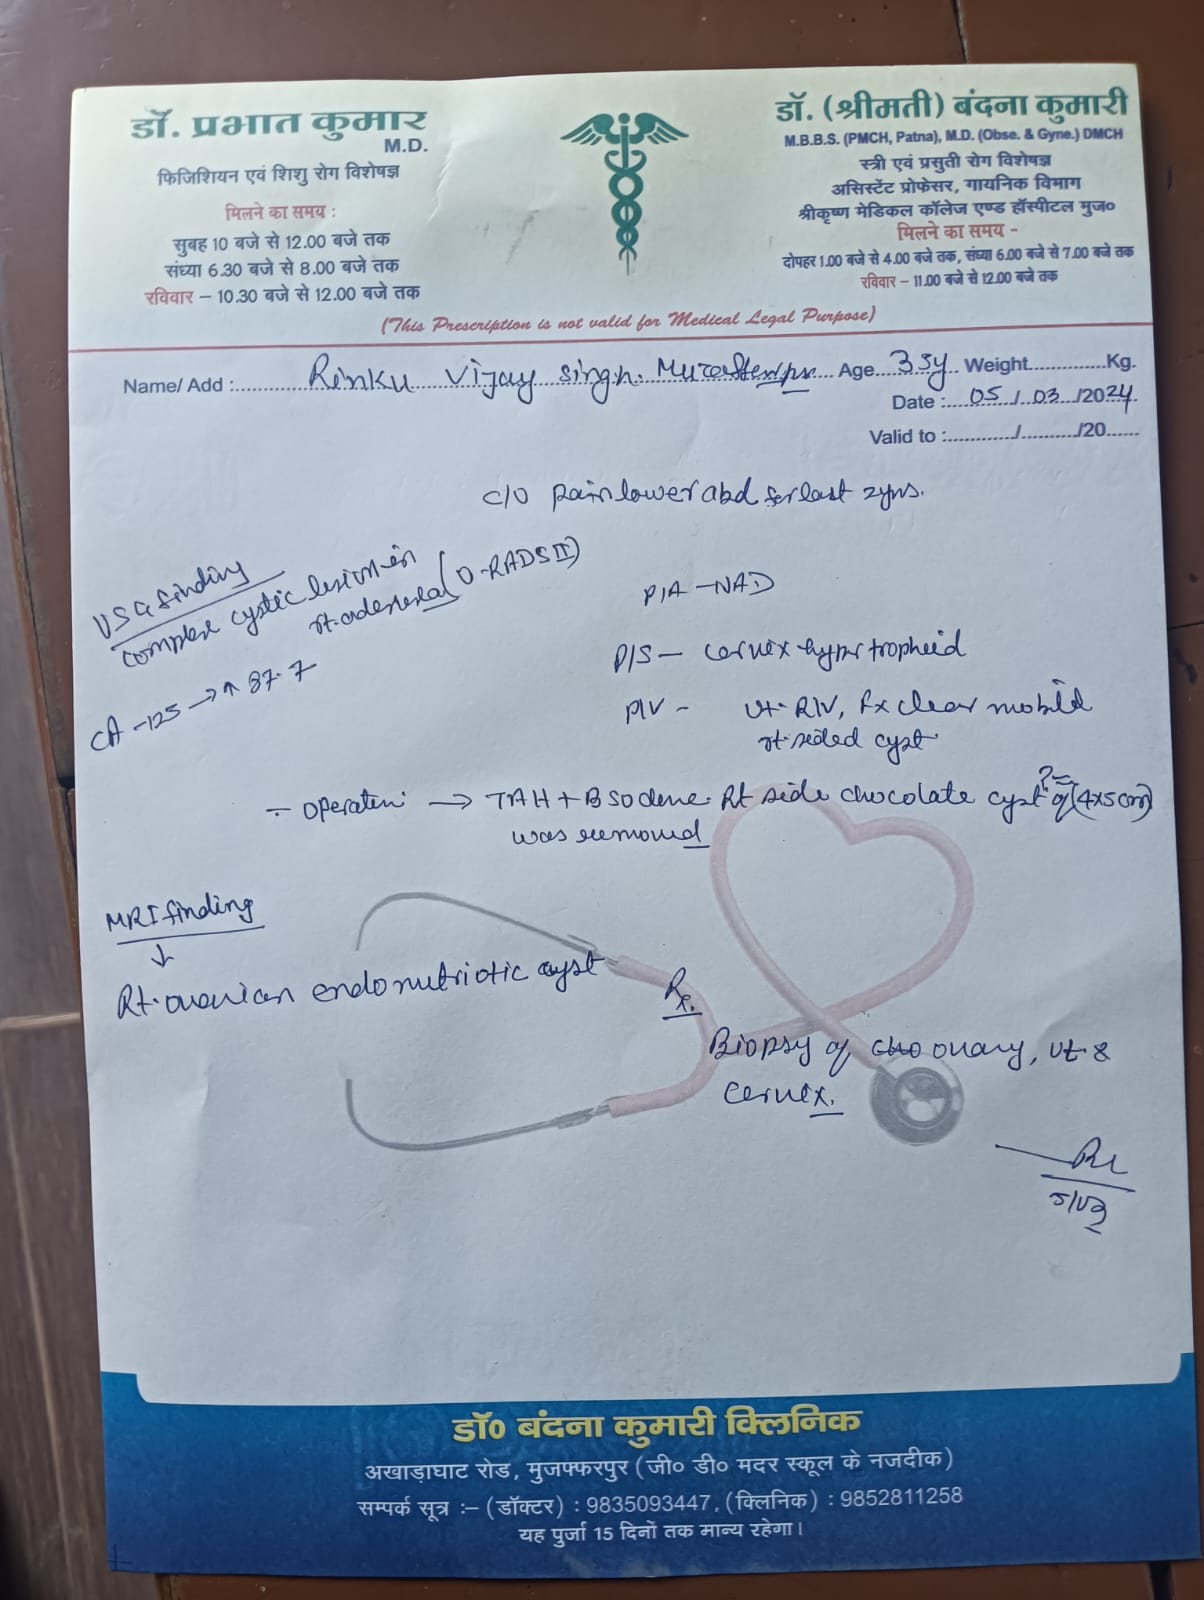 डॉ. प्रभात कुमार
M.D.
फिजिशियन एवं शिशु रोग विशेषज्ञ
मिलने का समय :
सुबह 10 बजे से 12.00 बजे तक
संध्या 6.30 बजे से 8.00 बजे तक
रविवार – 10.30 बजे से 12.00 बजे तक
डॉ. (श्रीमती) बंदना कुमारी
M.B.B.S. (PMCH, Patna), M.D. (Obse. & Gyne.) DMCH
स्त्री एवं प्रसुती रोग विशेषज्ञ
असिस्टेंट प्रोफेसर, गायनिक विभाग
श्रीकृष्ण मेडिकल कॉलेज एण्ड हॉस्पीटल मुज०
मिलने का समय -
दोपहर 1.00 बजे से 4.00 बजे तक, संध्या 6.00 बजे से 7.00 बजे तक
रविवार – 11.00 बजे से 12.00 बजे तक
(This Prescription is not valid for Medical Legal Purpose)
Name/ Add : Rinku Vijay Singh. Age 35y Weight Kg.
Date : 05/03/2024
Valid to : / /20
c/o pain lower abd for last 2yrs.
USG finding
complex cystic lesion in
rt. adenexal (O-RADS II)
CA-125 → ↑ 87.7
P/A - NAD
P/S - cervix hypertrophied
P/V - Ut. R/V, Fx clear mobild
rt. sided cyst
- operation → TAH + BSO done. Rt side chocolate cyst ? of (4x5cm)
was removed
MRI finding
↓
Rt. ovarian endometriotic cyst
Rx.
Biopsy of ovary, Ut. &
cervix.
डॉ० बंदना कुमारी क्लिनिक
अखाड़ाघाट रोड, मुजफ्फरपुर (जी० डी० मदर स्कूल के नजदीक)
सम्पर्क सूत्र :– (डॉक्टर) : 9835093447, (क्लिनिक) : 9852811258
यह पुर्जा 15 दिनों तक मान्य रहेगा।